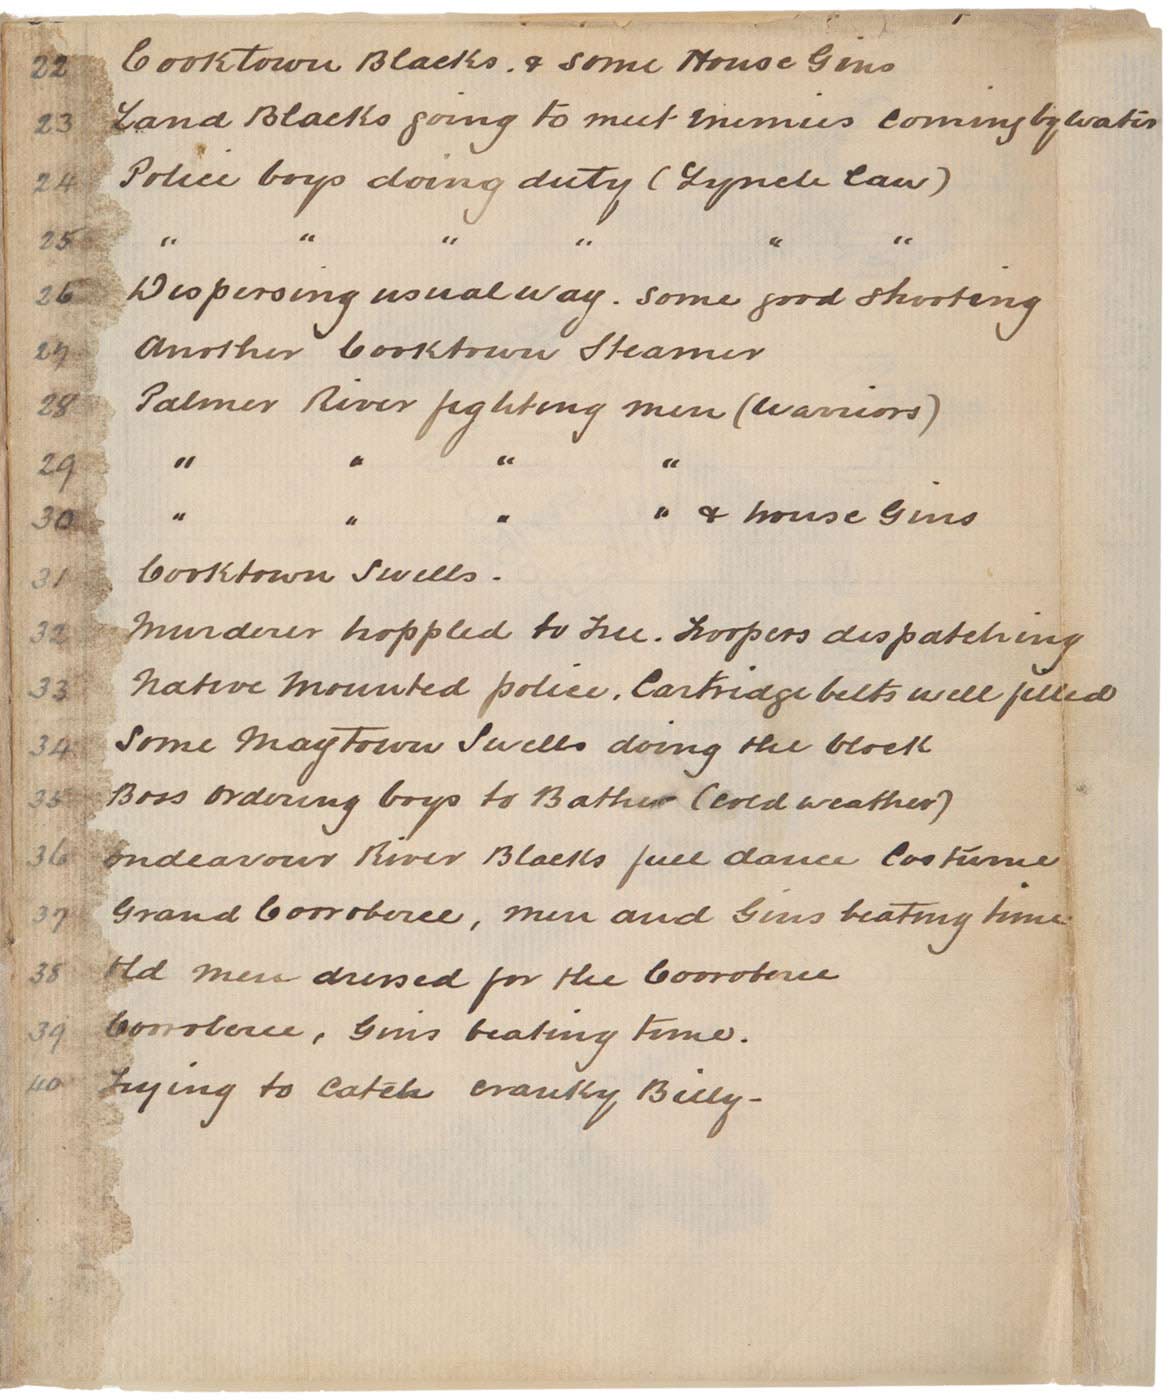 22 Cooktown Blacks. & Some House Gins
23 Land Blacks going to meet Enemies Coming by Water
24 Police boys doing duty (Lynch Law)
25 " " " " " "
26 Dispersing usual way. Some good Shooting
27 Another Cooktown Steamer
28 Palmer River fighting men (Warriors)
29 " " " "
30 " " " " & house Gins
31 Cooktown Swells.
32 Murderer hoppled to Tree. Troopers despatching
33 Native Mounted police. Cartridge belts well filled
34 Some Maytown Swells doing the block
35 Boss Ordering boys to Bathe (Cold weather)
36 Endeavour River Blacks full dance Costume
37 Grand Corroberee, men and Gins beating time
38 Old men dressed for the Corroberee
39 Corroberee, Gins beating time.
40 Trying to Catch Cranky Billy-